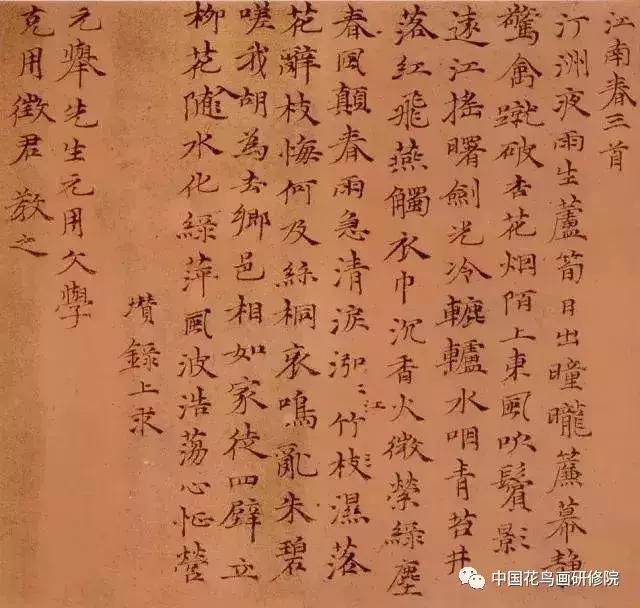 江南春三首
汀洲夜雨生蘆筍日出曈曨簾幕靜
驚禽蹴破杏花烟陌上東風吹鬢影
遠江搖曙劍光冷轆轤水咽青苔井
落紅飛燕觸衣巾沉香火微縈綠塵
春風顛春雨急清淚泓〻江竹枝濕落
花辭枝悔何及絲桐哀鳴亂朱碧
嗟我胡為去鄉邑相如家徒四壁立
柳花隨入水化綠萍風波浩蕩心怔營
瓚錄上求
元舉先生元用文學
克用徵君 教之
中国花鸟画研修院